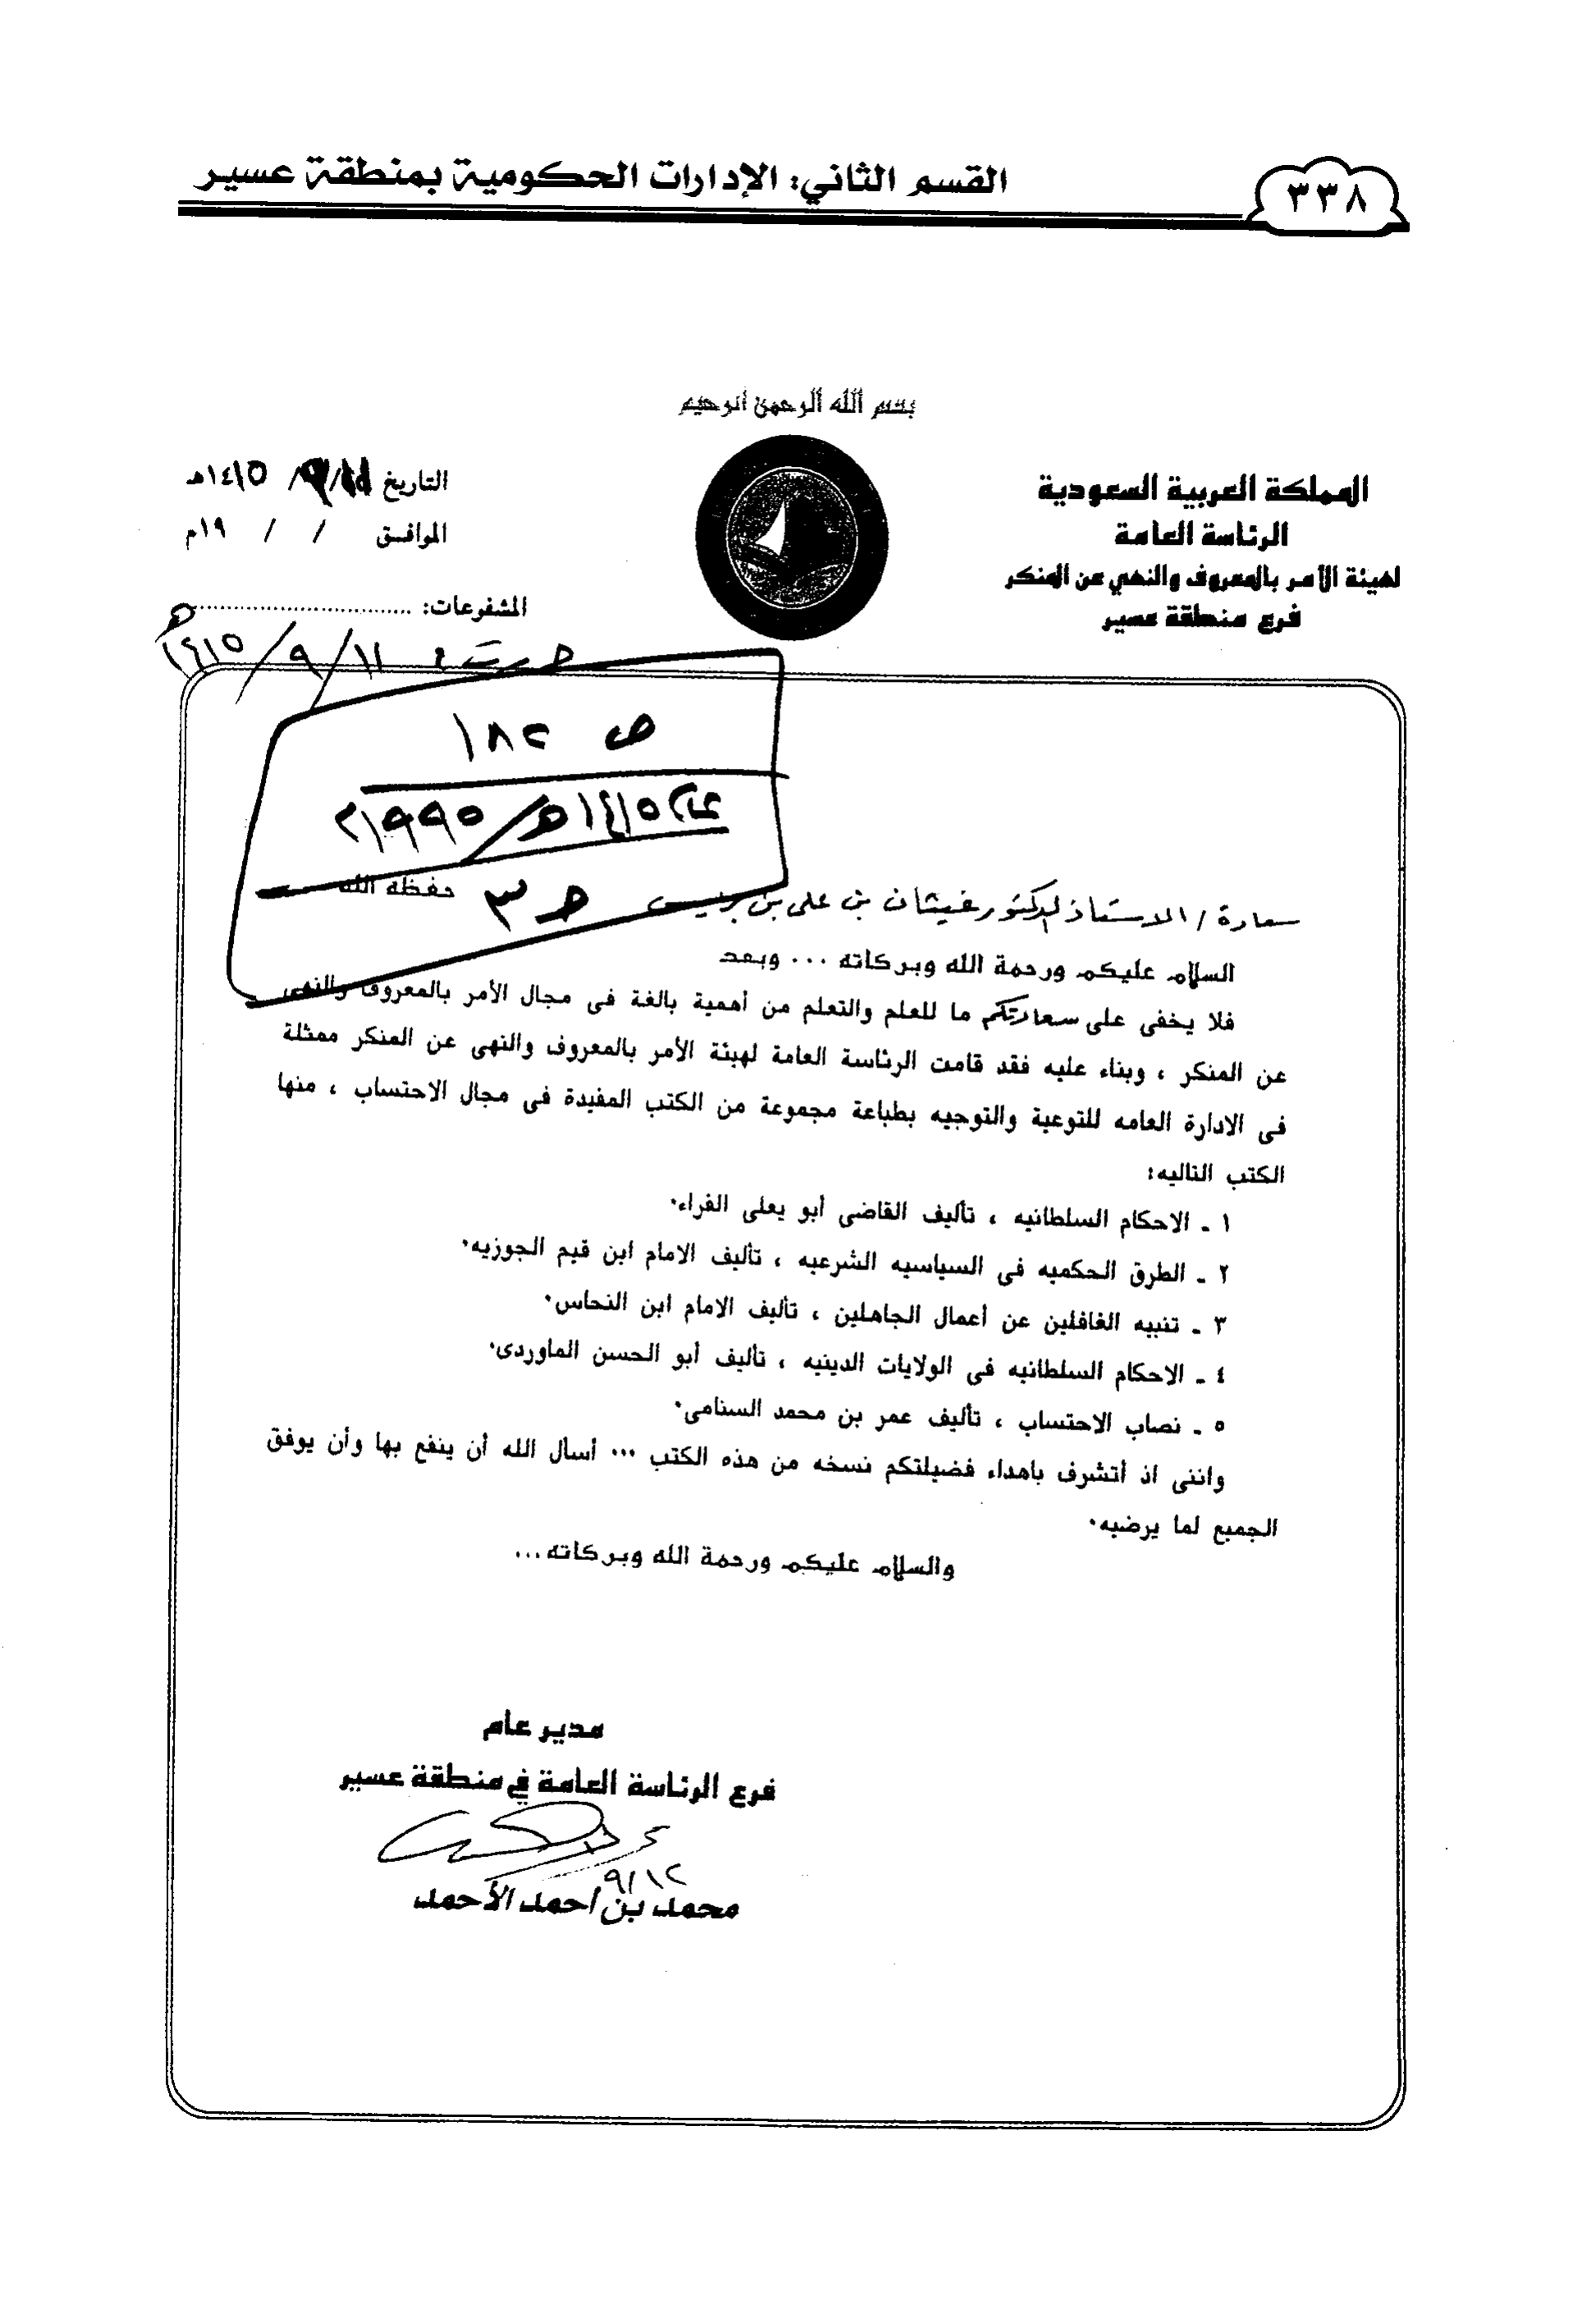 القسم الثاني: الإدارات الحكومية بمنطقة عسير
٣٣٨
بسم الله الرحمن الرحيم
المملكة العربية السعودية
الرئاسة العامة
لهيئة الأمر بالمعروف والنهي عن المنكر
فرع منطقة عسير
التاريخ ١١/٩/١٤١٥هـ
الموافق / / ١٩م
المشفوعات:
١١/٩/١٤١٥هـ
ص ١٨٢
عام ١٤١٥هـ/١٩٩٥م
ح ٣
سعادة / الاستاذ الدكتور غيثان بن علي بن جريس حفظه الله
السلام عليكم ورحمة الله وبركاته ... وبعد
فلا يخفى على سعادتكم ما للعلم والتعلم من أهمية بالغة فى مجال الأمر بالمعروف والنهى
عن المنكر ، وبناء عليه فقد قامت الرئاسة العامة لهيئة الأمر بالمعروف والنهى عن المنكر ممثلة
فى الادارة العامه للتوعية والتوجيه بطباعة مجموعة من الكتب المفيدة فى مجال الاحتساب ، منها
الكتب التاليه:
١ - الاحكام السلطانيه ، تأليف القاضى أبو يعلى الفراء.
٢ - الطرق الحكميه فى السياسيه الشرعيه ، تأليف الامام ابن قيم الجوزيه.
٣ - تنبيه الغافلين عن أعمال الجاهلين ، تأليف الامام ابن النحاس.
٤ - الاحكام السلطانيه فى الولايات الدينيه ، تأليف أبو الحسن الماوردى.
٥ - نصاب الاحتساب ، تأليف عمر بن محمد السنامى.
واننى اذ أتشرف باهداء فضيلتكم نسخه من هذه الكتب ... أسأل الله أن ينفع بها وأن يوفق
الجميع لما يرضيه.
والسلام عليكم ورحمة الله وبركاته...
مدير عام
فرع الرئاسة العامة في منطقة عسير
٩/١٢
محمد بن أحمد الأحمد